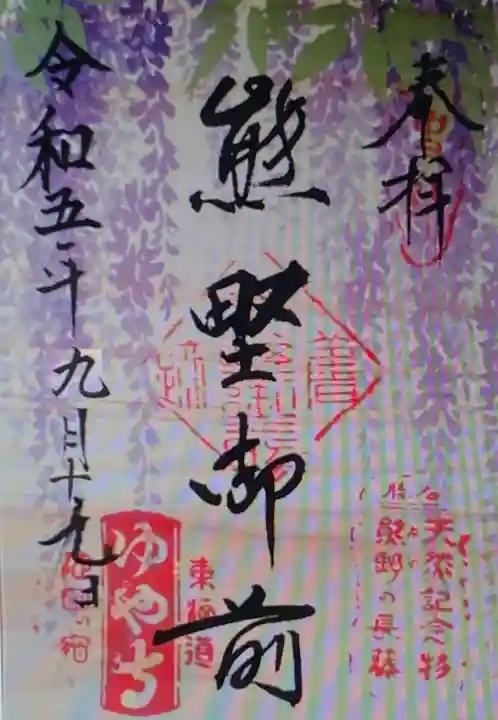 奉拝
天然記念物
熊野の長藤
熊野御前
東海道
ゆや
池田の宿
令和五年九月十九日